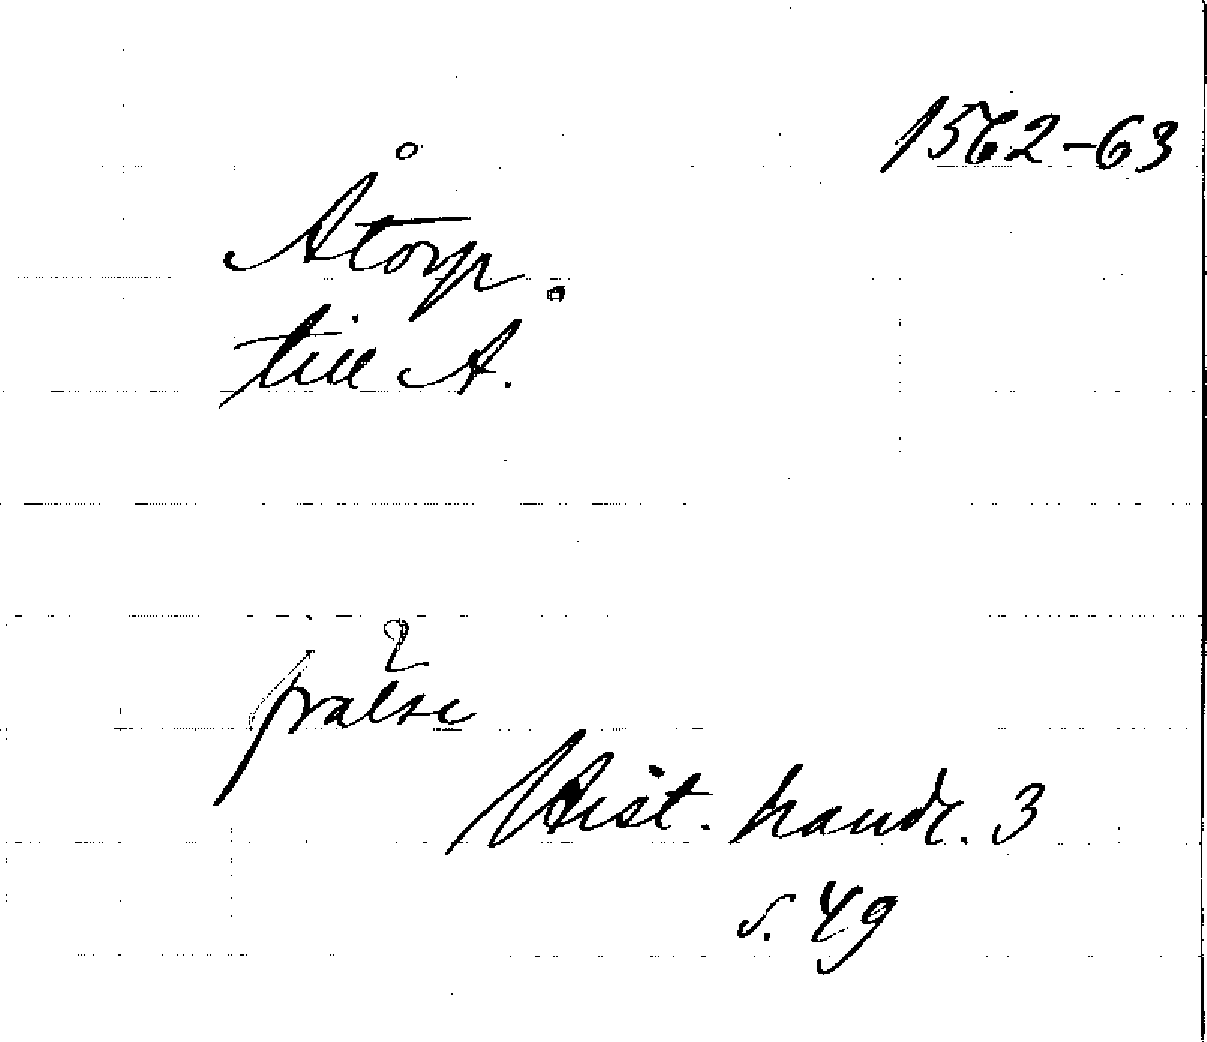 1562-63
Åtorp
till Å.
2
frälse
Hist. handl. 3
s. 49